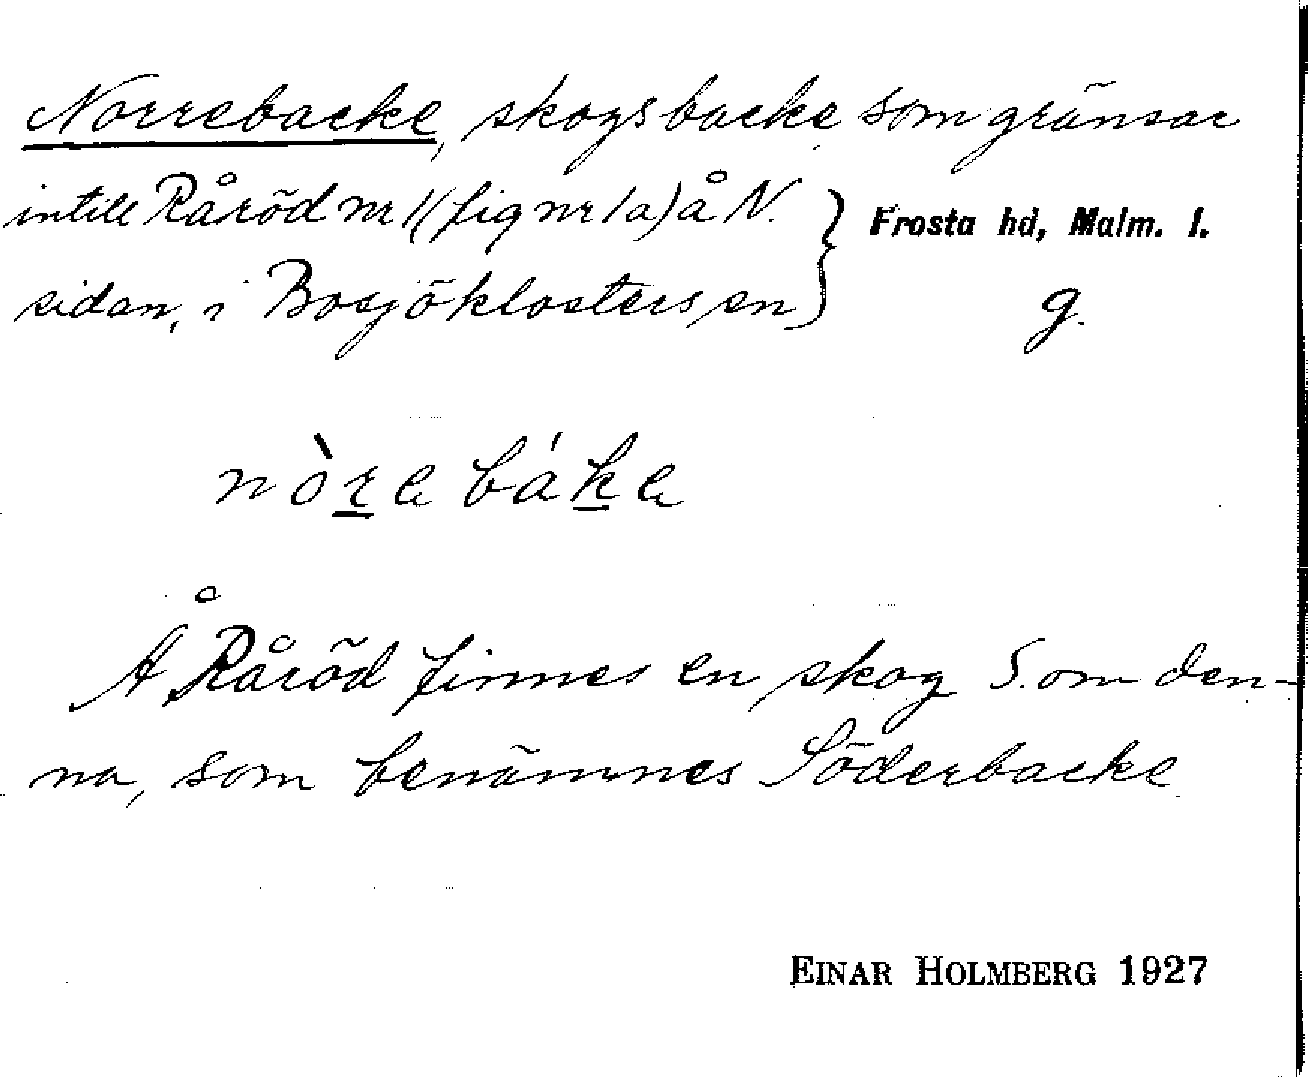 Norrebacke, skogsbacke som gränsar
intill Råröd nr 1 (fig nr 1a) å N.
sidan, i Bosjöklosters sn
Frosta hd, Malm. l.
g.
nòrabáka
Å Råröd finnes en skog S. om den-
na, som benämnes Söderbacke
EINAR HOLMBERG 1927